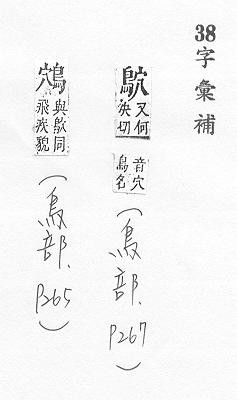 38字彙補
鴥 又何決切
音穴鳥名
(鳥部、P267)
鴪 與鴥同飛疾貌
(鳥部、P265)